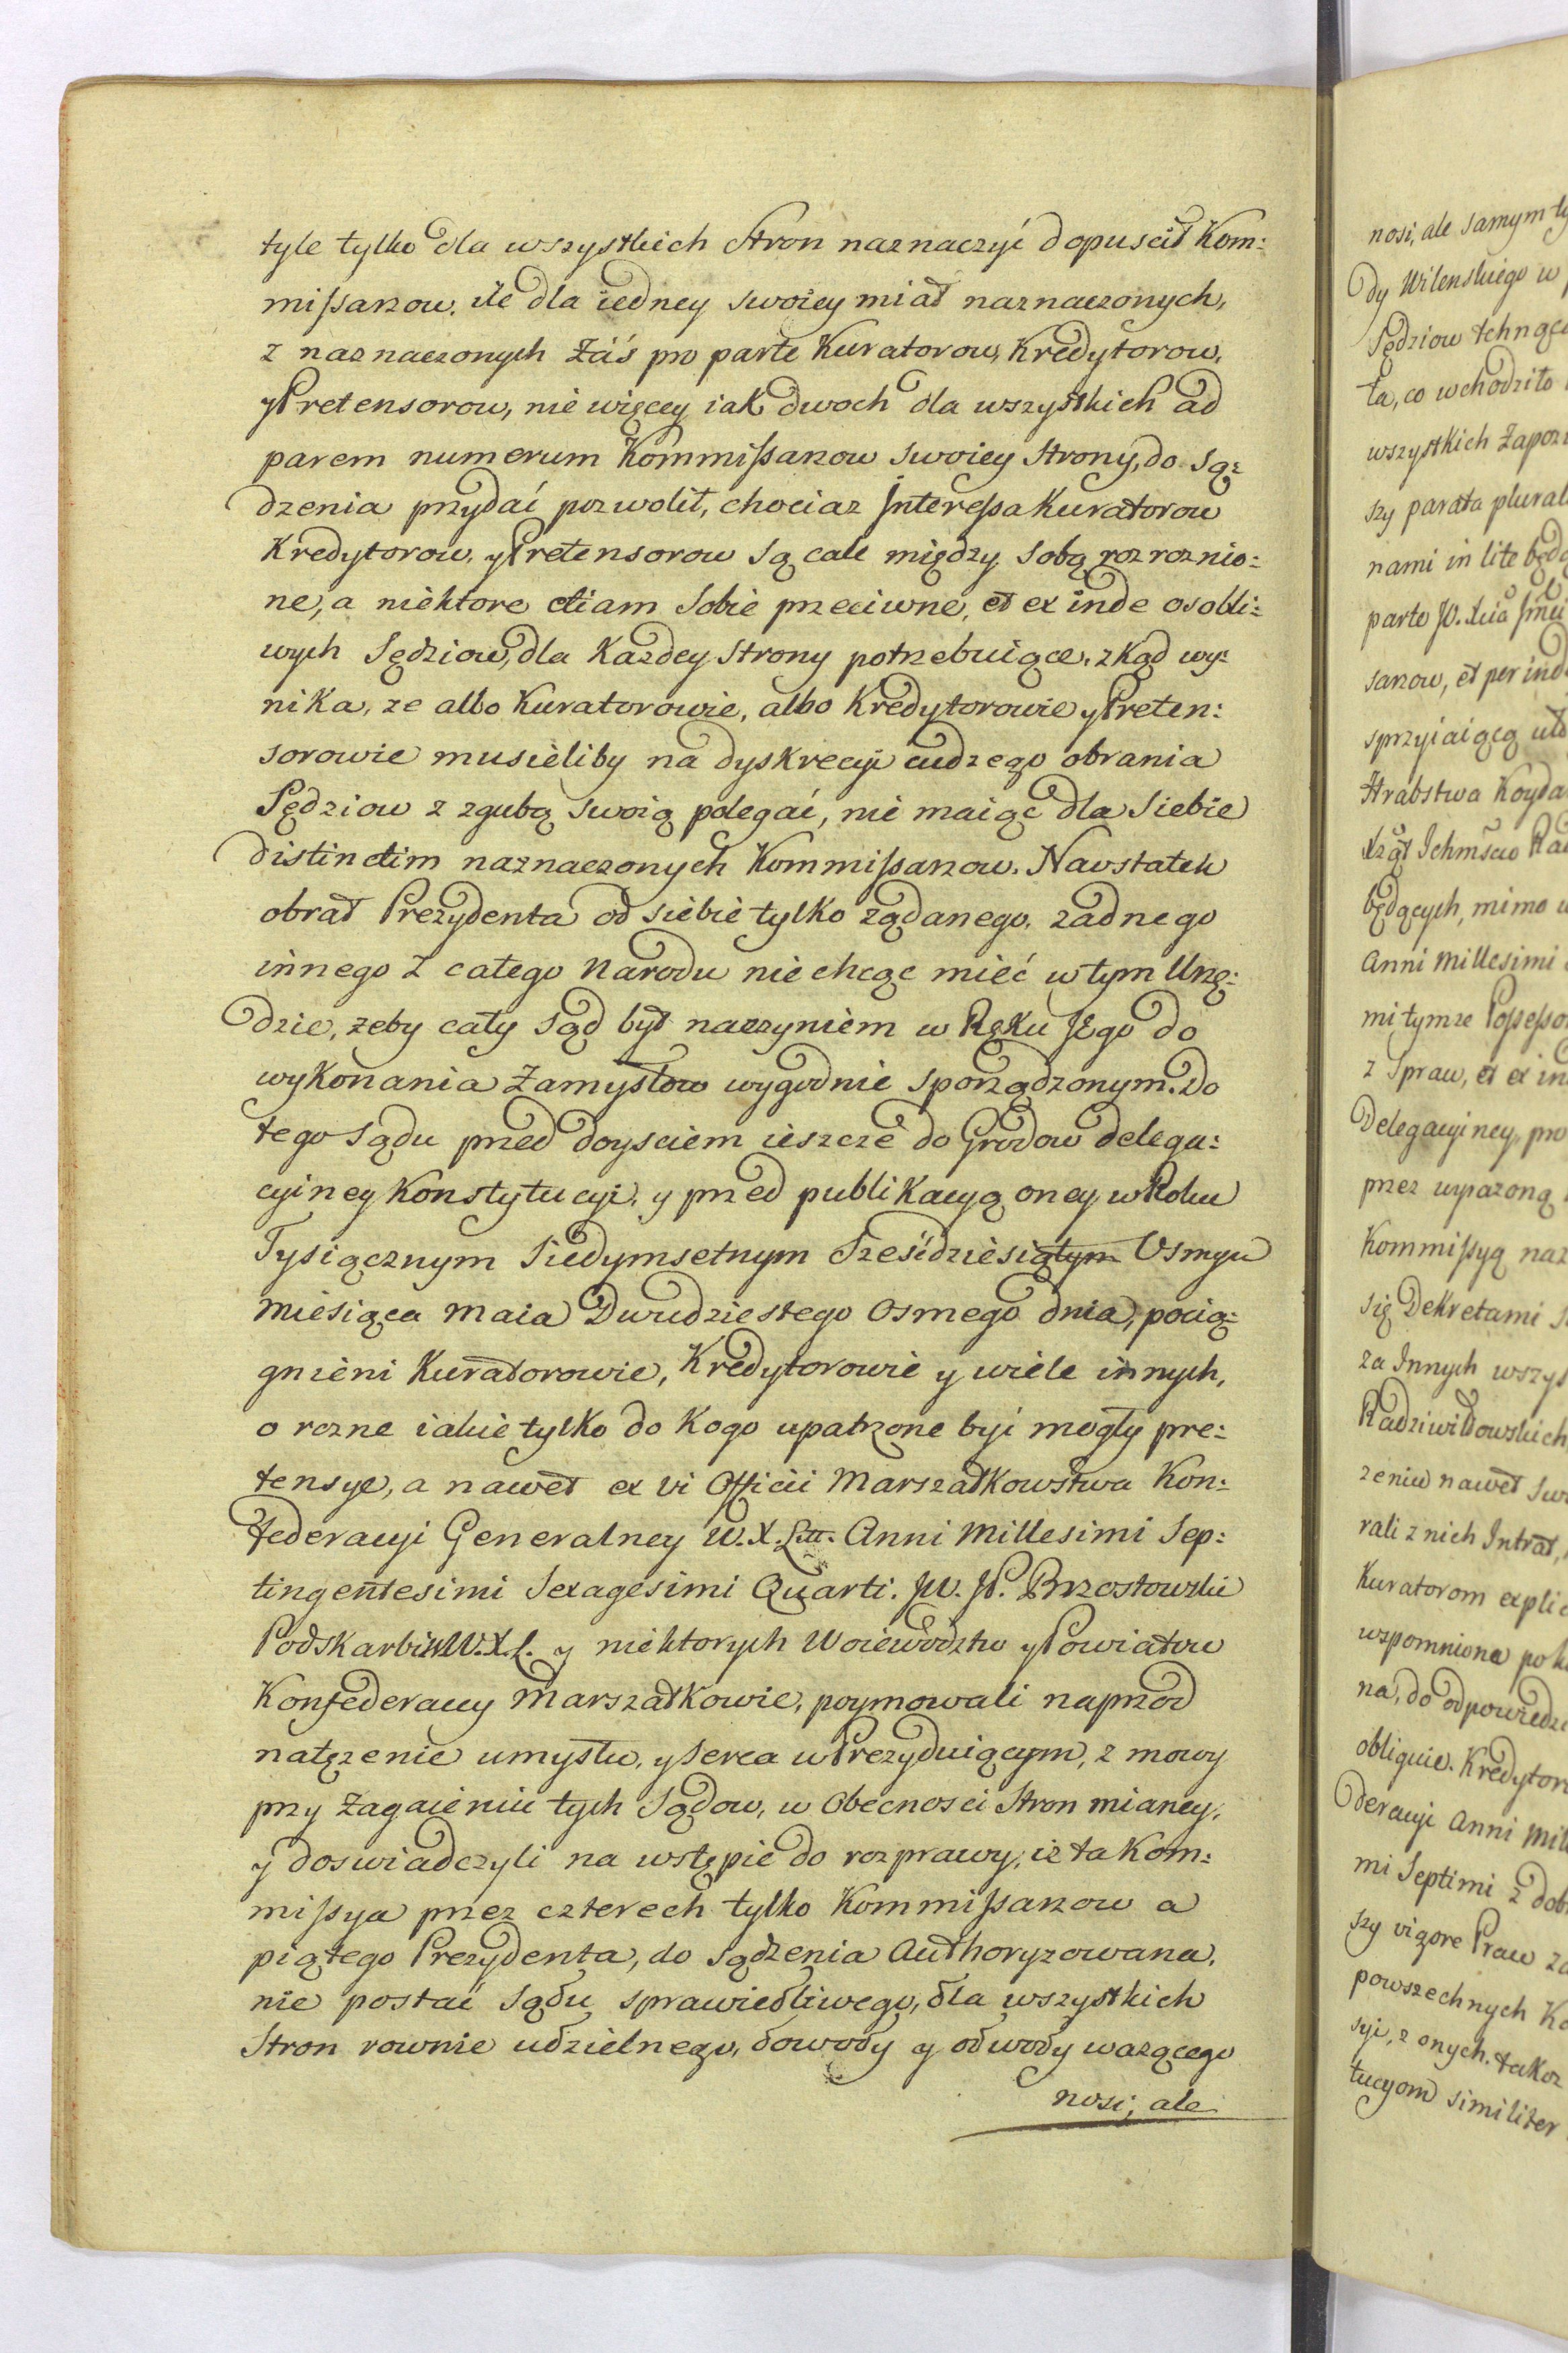 tyle tylko dla wszystkich Stron naznaczyć dopuscił Kom:
missarzow. ile dla iedney swoiey miał naznaczonych,
z naznaczonych Záś pro parte Kuratorow, Kredytorow,
y Pretensorow, nie więcey iak dwoch dla wszystkich ad
parem numerum Kommissarzow swoiey Strony, do Są:
dzenia przydać pozwolił, chociaz Interessa Kuratorow
Kredytorow, y Pretensorow Są całe między Sobą rozroznio:
ne, a niektore etiam Sobie przeciwne, et ex inde osobli:
wych Sędziow, dla Kazdey Strony potrzebuiące, zkąd wy:
nika, ze albo Kuratorowie, albo Kredytorowie y Preten:
sorowie musieliby na dyskrecyi cudzego obrania
Sędziow z zgubą swoią polegać, nie maiąc dla Siebie
distinctim naznaczonych Kommissarzow. Naostatek
obrał Prezydenta od siebie tylko ządanego. zadnego
innego z całego Narodu nie chcąc mieć w tym Urzę:
dzie, zeby cały Sąd był naczyniem w Ręku Jego do
wykonania Zamysłow wygodnie sporządzonym. Do
tego Sądu przed doysciem ieszcze do Grodow delega:
cyiney Konstytucyi, y przed publikacyą oney, w Roku
Tysiącznym Siedymsetnym Sześćdziesiątym Osmym
Miesiąca Maia Dwudziestego Osmego dnia, pocią:
gnieni Kuratorowie, Kredytorowie y wiele innych,
o rozne iakie tylko do Kogo upatrzone byi mogły pre:
tensye, a nawet ex vi Officii Marszałkowstwa Kon:
federacyi Generalney W. X. Litt. Anni Millesimi Sep:
tingentesimi Sexagesimi Quarti. JW. JP. Brzostowski
Podskarbi W. X. L. y niektorych Woiewodztw y Powiatow
Konfederacyy Marszałkowie, poymowali naprzod
natęzenie umysłu, y Serca w Prezyduiącym, z mowy
przy Zagaieniu tych Sądow, w Obecnosci Stron mianey,
y doswiadczyli na wstępie do rozprawy, iz ta Kom:
missya przez czterech tylko Kommissarzow a
piątego Prezydenta, do Sądzenia Authoryzowana,
nie postać Sądu sprawiedliwego, dla wszystkich
Stron rownie udzielnego, dowody y odwody wazącego
nosi; ale

nosi, ale samym
dy Wilenskiego w
Sędziow tchnące
ła, co wchodziło
wszystkich Zapoz
szy parata plural
nami in lite będą
parte
sarzow, et per ind
sprzyiaiącą
Hrabstwa Koyda
będących, mimo
Anni Millesimi
mi tymze Possesso
z Spraw, et ex in
Delegacyiney, pro
przez wyrazoną
Kommissyą naz
się Dekretami
za Innych wszys
Radziwiłłowskich
zeniu nawet Sw
rali z nich Intrat,
Kuratorom explic
wspomniona po
na, do odpowiedzi
oblique. Kredytor
deracyi Anni Mil
mi Septimi z dob
szy vigore Praw za
powszechnych Ko
syi, z onych. takoz
tucyom similiter